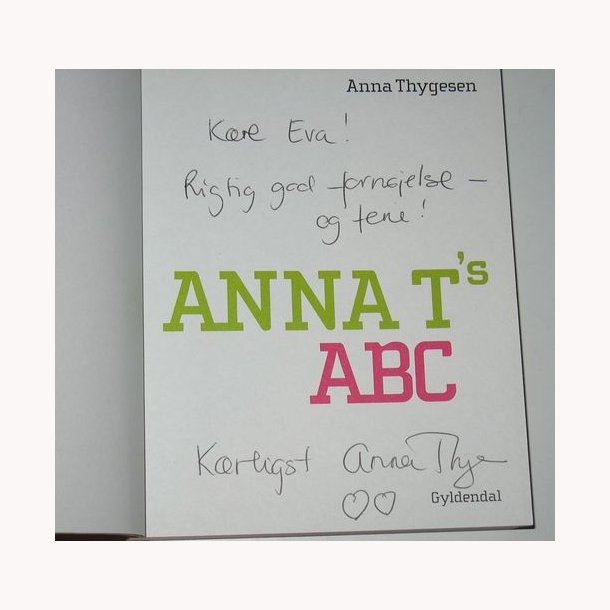 Anna Thygesen
Kære Eva!
Rigtig god fornøjelse –
og ferie!
ANNA T's
ABC
Kærligst Anna Thyge
Gyldendal